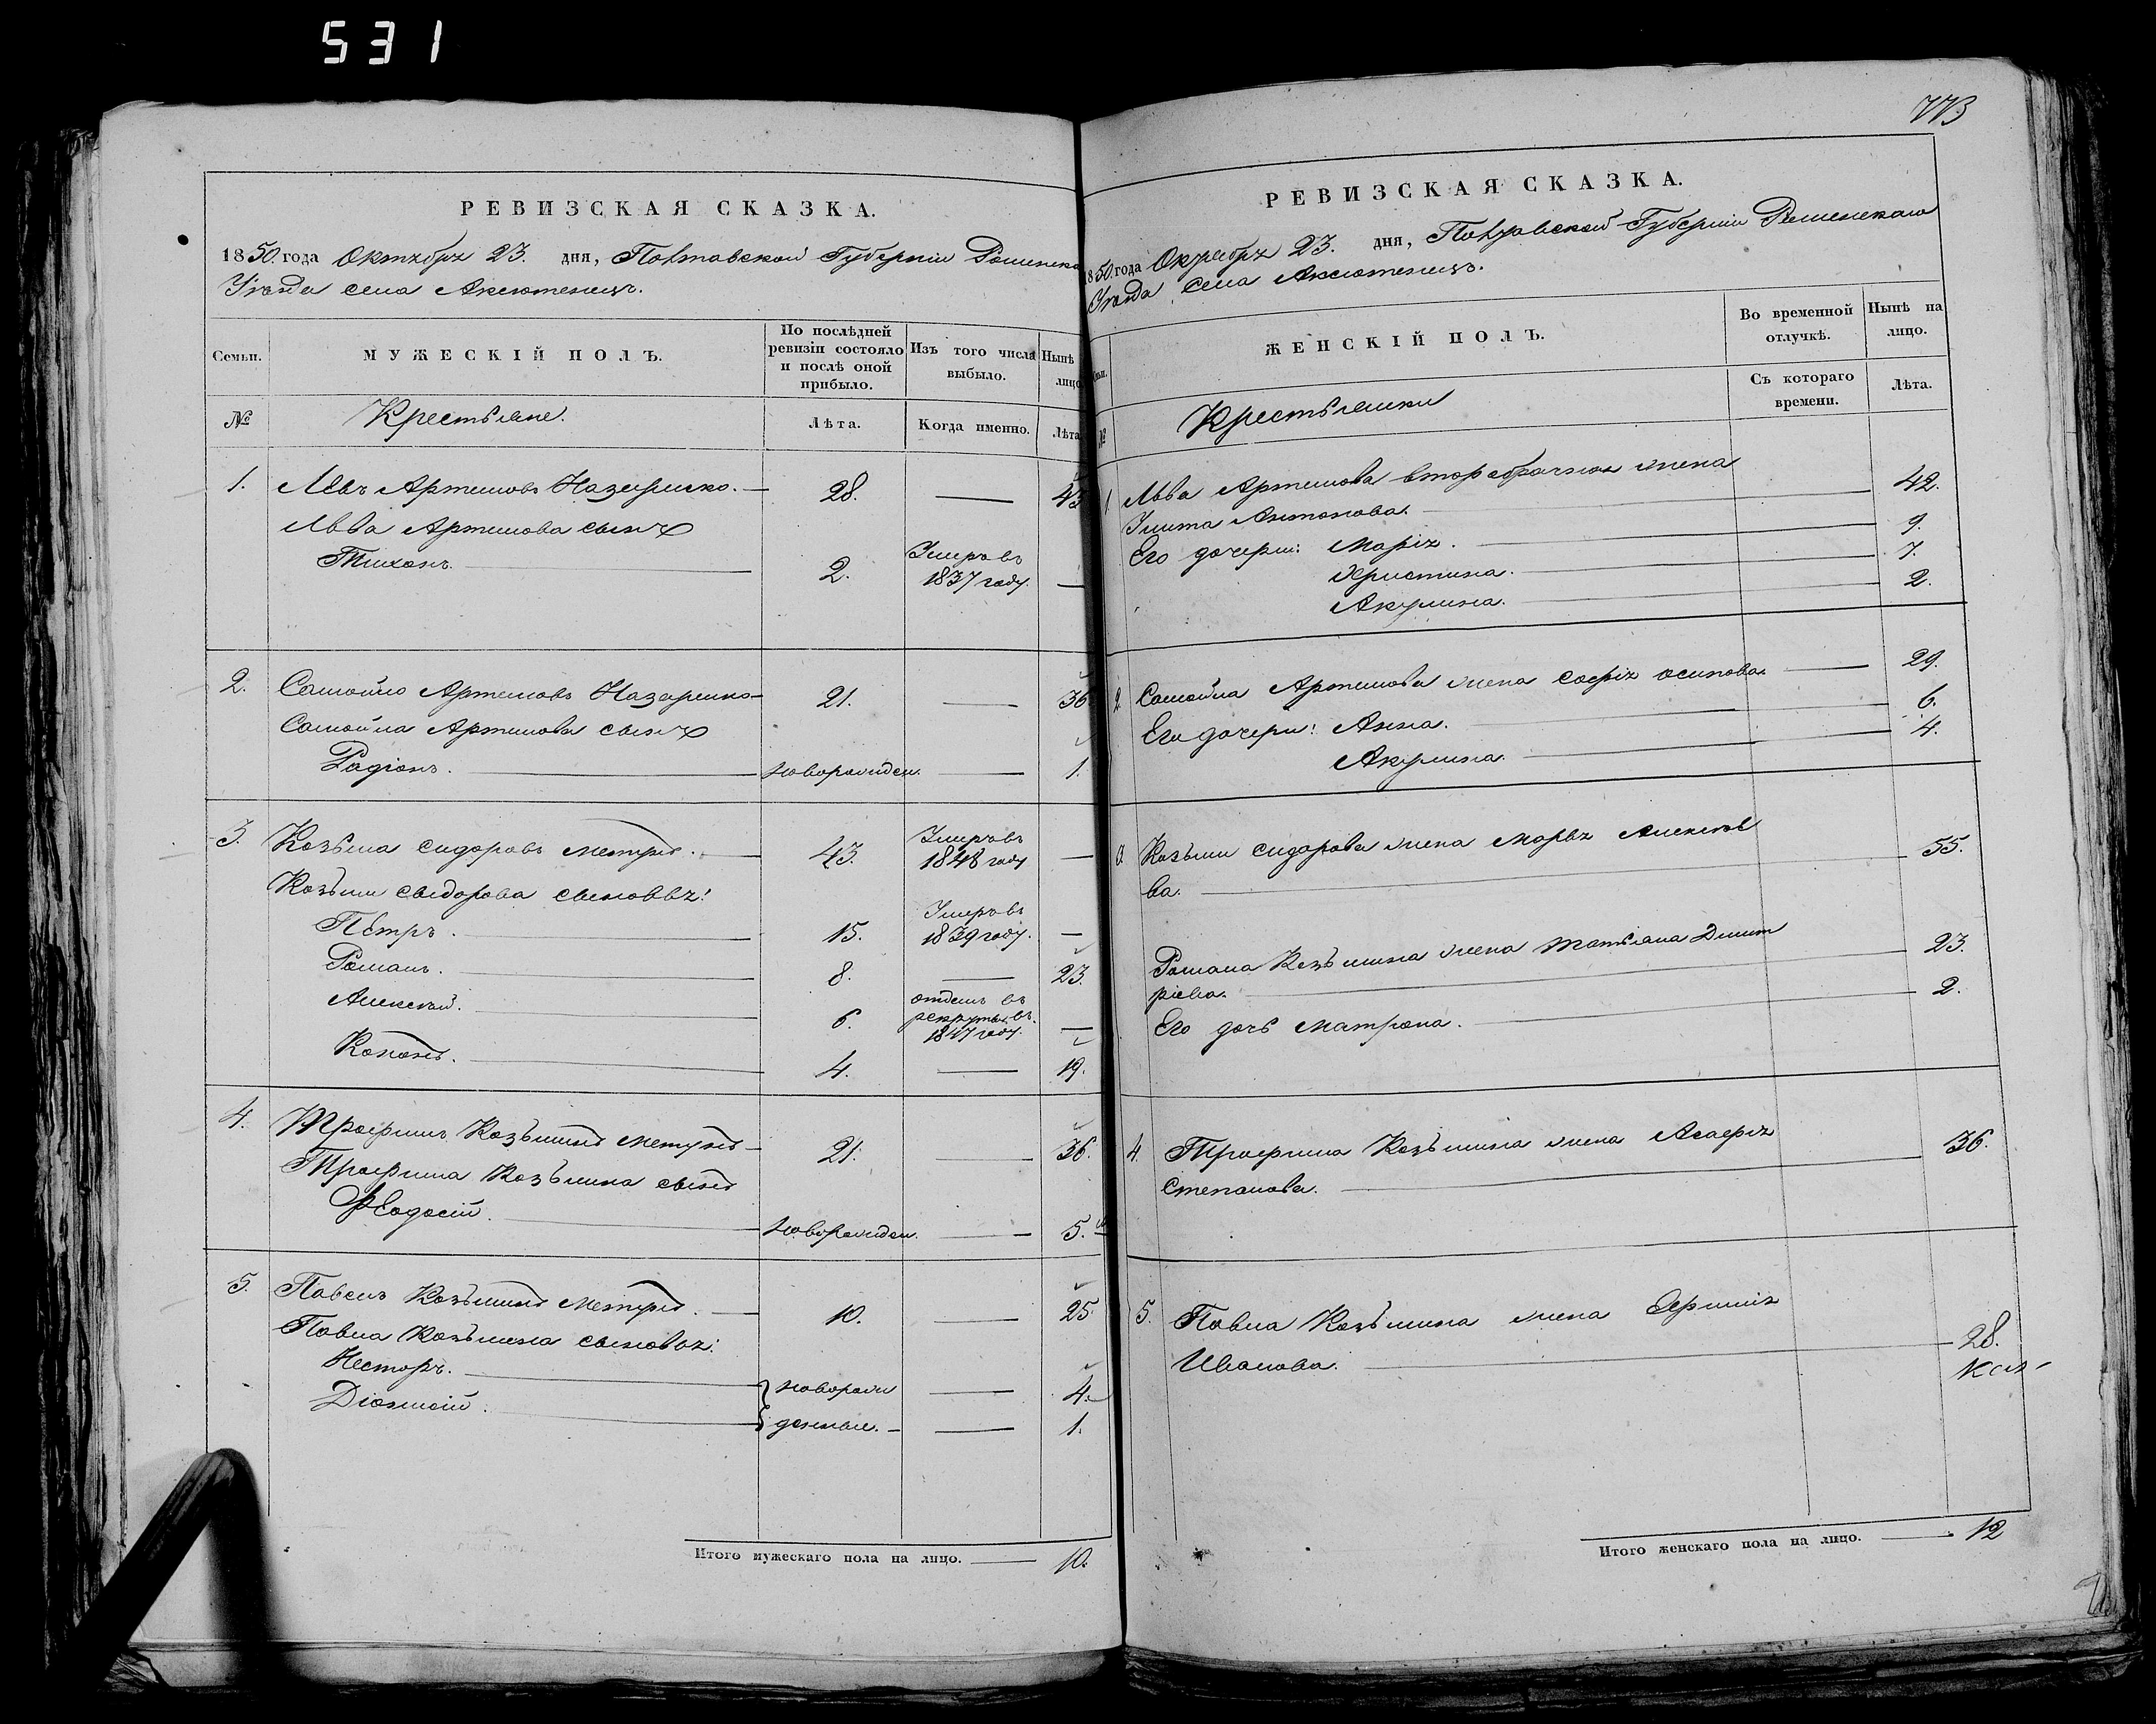 531
РЕВИЗСКАЯ СКАЗКА.
1850. года Октября 23. дня, Полтавской Губерніи Роменска
Уѣзда села Аксютенецъ.
Семьи.
МУЖЕСКІЙ ПОЛЪ.
По послѣдней ревизіи состояло и послѣ оной прибыло.
Изъ того числа выбыло.
Нынѣ лицо
№
Крестьяне.
Лѣта.
Когда именно.
Лѣта
1. Левъ Артемовъ Назаренко. 28. — 43
Льва Артемова сынъ
Тихонъ. 2. Умеръ въ 1837 году. —
2. Самойло Артемовъ Назаренко 21. — 36
Самойла Артемова сынъ
Радіонъ. новорожден. — 1.
3. Козьма Сидоровъ 43. Умеръ въ 1848 году —
Козьмы Сыдорова сыновья:
Петръ. 15. Умеръ въ 1839 году. —
Романъ. 8. — 23.
Алексѣй. 6. отданъ въ рекруты въ 1847 году. —
Кононъ. 4. — 19.
4. Трофимъ Козьминъ 21. — 36.
Трофима Козьмина сынъ
Феодосій. новорожден. — 5.
5. Павелъ Козьминъ 10. — 25.
Павла Козьмина сыновья:
Несторъ. новорож — 4.
Діонисій. денные. — 1.
Итого мужескаго пола на лицо. — 10.
773
РЕВИЗСКАЯ СКАЗКА.
1850. года Октября 23. дня, Полтавской Губерніи Роменскаго
Уѣзда села Аксютенецъ.
ЖЕНСКІЙ ПОЛЪ.
Во временной отлучкѣ.
Нынѣ на лицо.
№
Крестьянки
Съ котораго времени.
Лѣта.
1. Льва Артемова второбрачная жена
Улита Антонова. 42.
Его дочери: Марія. 9.
Христина. 7.
Акулина. 2.
2. Самойла Артемова жена Софія Осипова 29.
Его дочери: Анна. 6.
Акулина. 4.
3. Козьмы Сидорова жена Марья Алексѣе
ва. 55.
Романа Козьмина жена Татьяна Дмит
ріева. 23.
Его дочь Матрона. 2.
4. Трофима Козьмина жена Агафія
Степанова. 36.
5. Павла Козьмина жена
Иванова. 28.
Итого женскаго пола на лицо. — 12